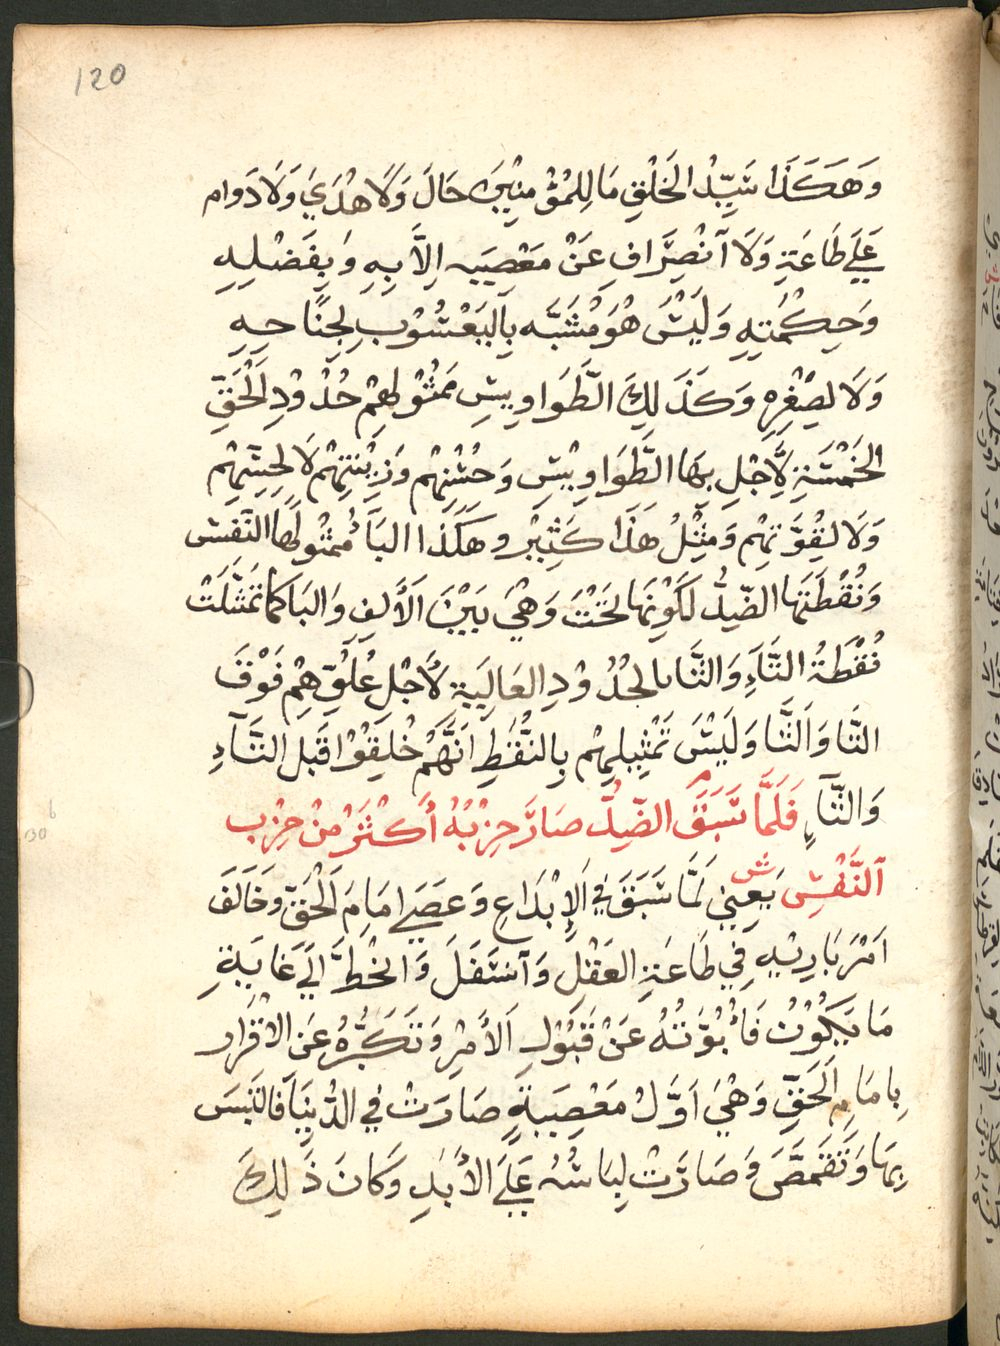 120
وَهَكَذَا سَيِّدْ الخَلْقِ مَا لِلمُؤْمِنِيْنَ حَالَ وَلَا هْدَيَ وَلَا دَوام
عَلَي طَاعَةٍ وَلَا آنْصِرَافِ عَنْ مَعْصِيَه اِلَّا بِهِ وَبِفَضْلِهِ
وَحِكْمَتِهِ وَلَيْسَ هُوَ مْشَبَّه بِاَليَعْسُوْبِ لِجِنَاحِهِ
وَلَا لصِغْرِهِ وَكَذَلِكَ الطَّوَاوِيسِ مَمْثُوْلهم حُدُوْدِ اَلْحَقِّ
الخَمْسَةِ لِاَجْلِ بِهَا الطَّوَاوِيْسِ وَحُسْنِهْم وَزِيْنَتِهْم لَا لِجِسِّهِمْ
وَلَا لِقُوَّتِهْم وَمِثْلُ هَذَا كَثِيْرْ وهَكَذا البَاَ مُمثْولهَا النَفس
وَنُقْطَتَهَا الضِدُّ لكَوْنِهَا لحَتْتَ وَهْيَ بَيْنَ الأَلِفِ وَالبَا كمَا تَمَثَّلَتْ
نُقْطَةُ التَّاءِ وَالثَّا بالحُدُوْدِ العَالِيَة لأَجْلِ عُلُوِّهِمْ فَوْقَ
التَّا وَاَلثَّا وَلَيْسَ تَمْثِيلهِمْ بِالنُّقَطِ اَنَّهُمْ خْلِقُوْا قَبل التَّآءِ
وَالثَّآءِ فَلَمَّا سَبَقَ الضِدُّ صَارَ حِزْبُهُ أَكْثَرْ مِنْ حِزْبِ
اَلنَّفْسِ ش يَعِنِي لَمَّا سَبَقَ فِي اَلإِبْدَاعِ وَعَصَي امَامَ اَلْحَقّ وخَالَفَ
اَمْرَ بَارِيْهِ فِي طَاعَةِ العَقْلِ وَآستَفَلَ وَانحْطَّ الَي غَايَةِ
مَا يَكُوْنْ فَأْبُوَّتُهُ عَنْ قَبُوْلِ اَلأَمْرِ وَتَكَبُّرُهُ عَنَ الاقْرَار
بِامَامِ اَلحَقِّ وَهْيَ اَوَّلْ مَعْصِيَةٍ صَارَتْ فِي الدُّنْيَا فَالتَبسَ
بِهَا وَتَقَمَّصَ وَصَارَتْ لِبَاسُهُ عَلَى الأَبَدِ وَكَانَ ذَلِكَ